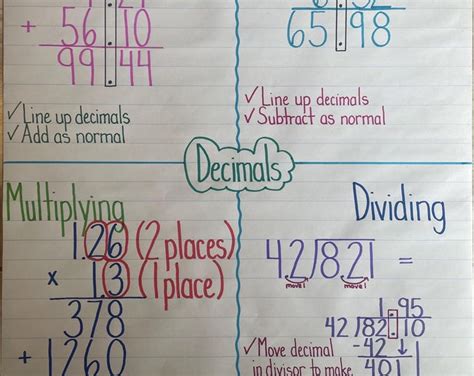 + 56.10
99.44
65.98
✓Line up decimals
✓Add as normal
✓Line up decimals
✓Subtract as normal
Decimals
Multiplying
1.26 (2 places)
x 1.3 (1 place)
378
+ 1260
Dividing
4.2)8.21 =
move 1 move 1
1.95
42)82.10
-42
401
✓Move decimal
in divisor to make